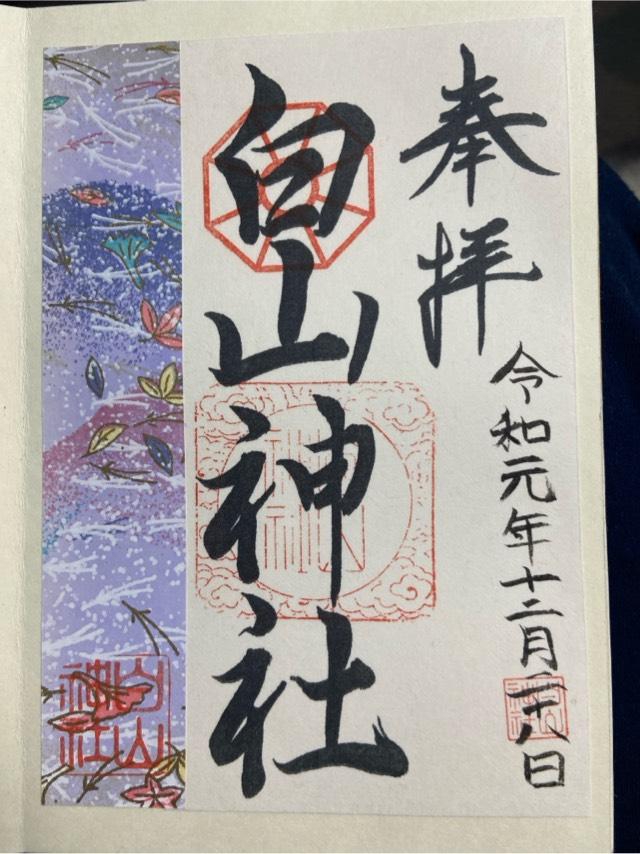 奉拝
令和元年十二月二十八日
白山神社
白山
神社